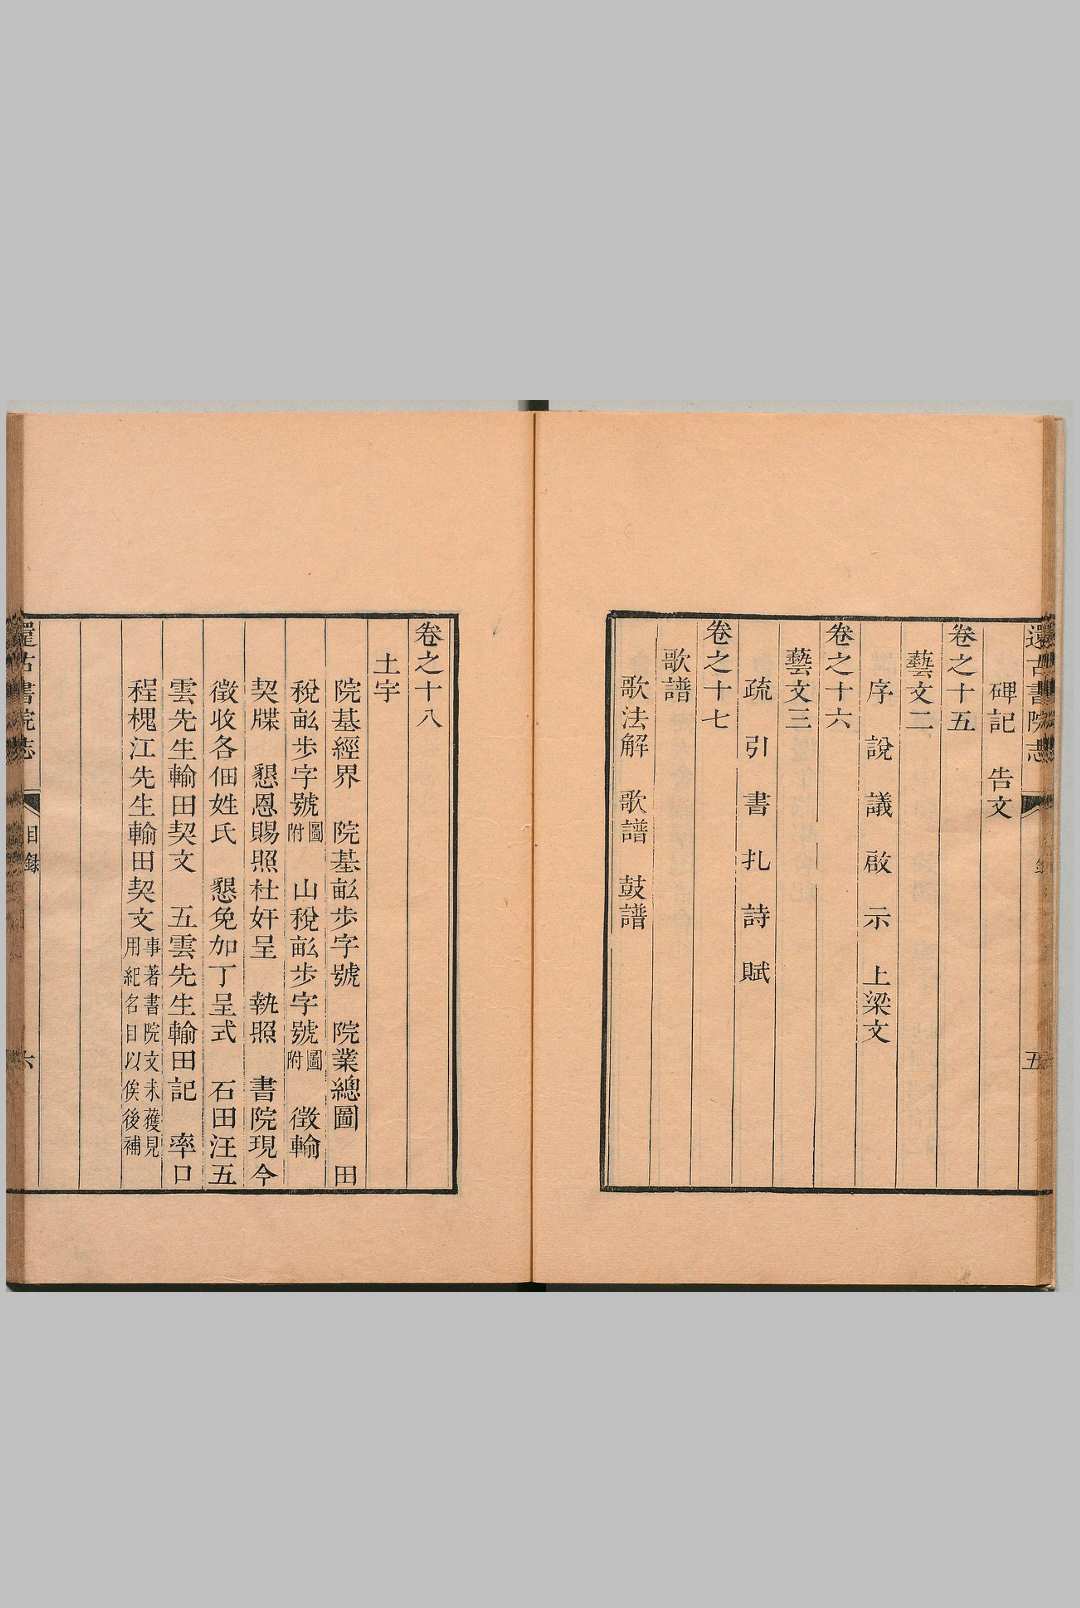 還古書院志
五
碑記　告文
卷之十五
藝文二
序　說　議　啟　示　上梁文
卷之十六
藝文三
疏　引　書　扎　詩　賦
卷之十七
歌譜
歌法解　歌譜　鼓譜
卷之十八
土宇
院基經界　院基畝步字號　院業總圖　田
稅畝步字號附圖　山稅畝步字號附圖　徵輸
契牒　懇恩賜照杜奸呈　執照　書院現今
徵收各佃姓氏　懇免加丁呈式　石田汪五
雲先生輸田契文　五雲先生輸田記　率口
程槐江先生輸田契文事著書院文未獲見用紀名目以俟後補
還古書院志
目錄
六